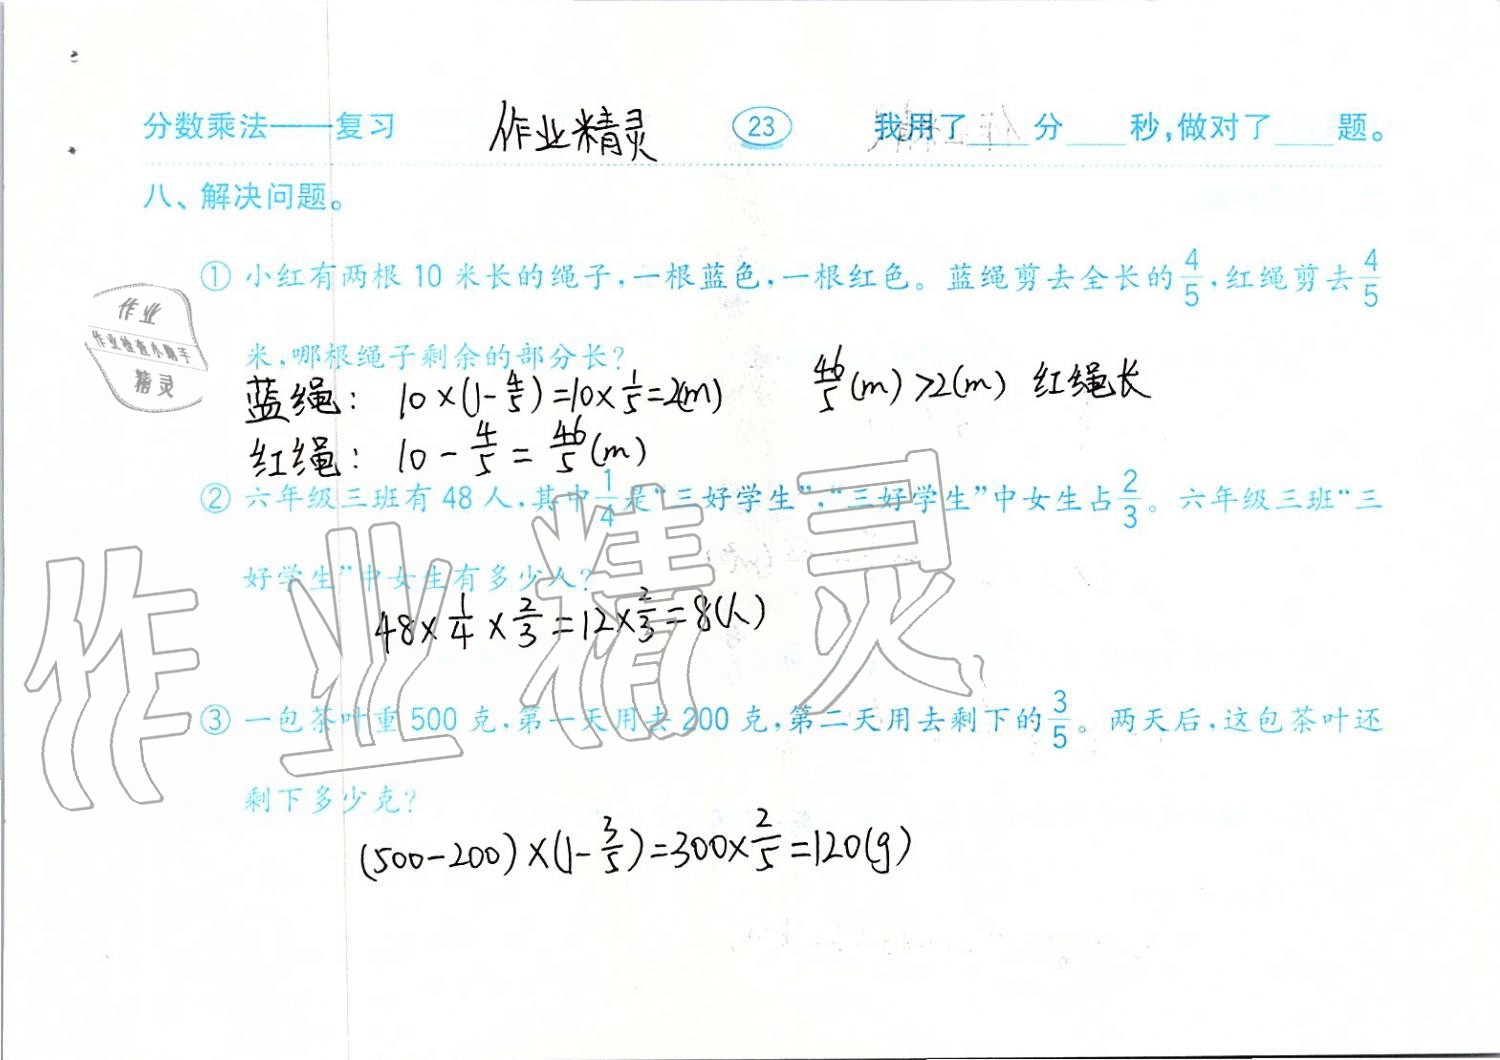 分数乘法——复习 作业精灵 23 我用了____分____秒,做对了____题。
八、解决问题。
① 小红有两根10米长的绳子,一根蓝色,一根红色。蓝绳剪去全长的4/5,红绳剪去4/5
米,哪根绳子剩余的部分长?
蓝绳: 10×(1-4/5)=10×1/5=2(m) 46/5(m)>2(m) 红绳长
红绳: 10-4/5=46/5(m)
② 六年级三班有48人,其中1/4是“三好学生”,“三好学生”中女生占2/3。六年级三班“三
好学生”中女生有多少人?
48×1/4×2/3=12×2/3=8(人)
③ 一包茶叶重500克,第一天用去200克,第二天用去剩下的3/5。两天后,这包茶叶还
剩下多少克?
(500-200)×(1-3/5)=300×2/5=120(g)
作业
作业检查小助手
精灵
作业精灵